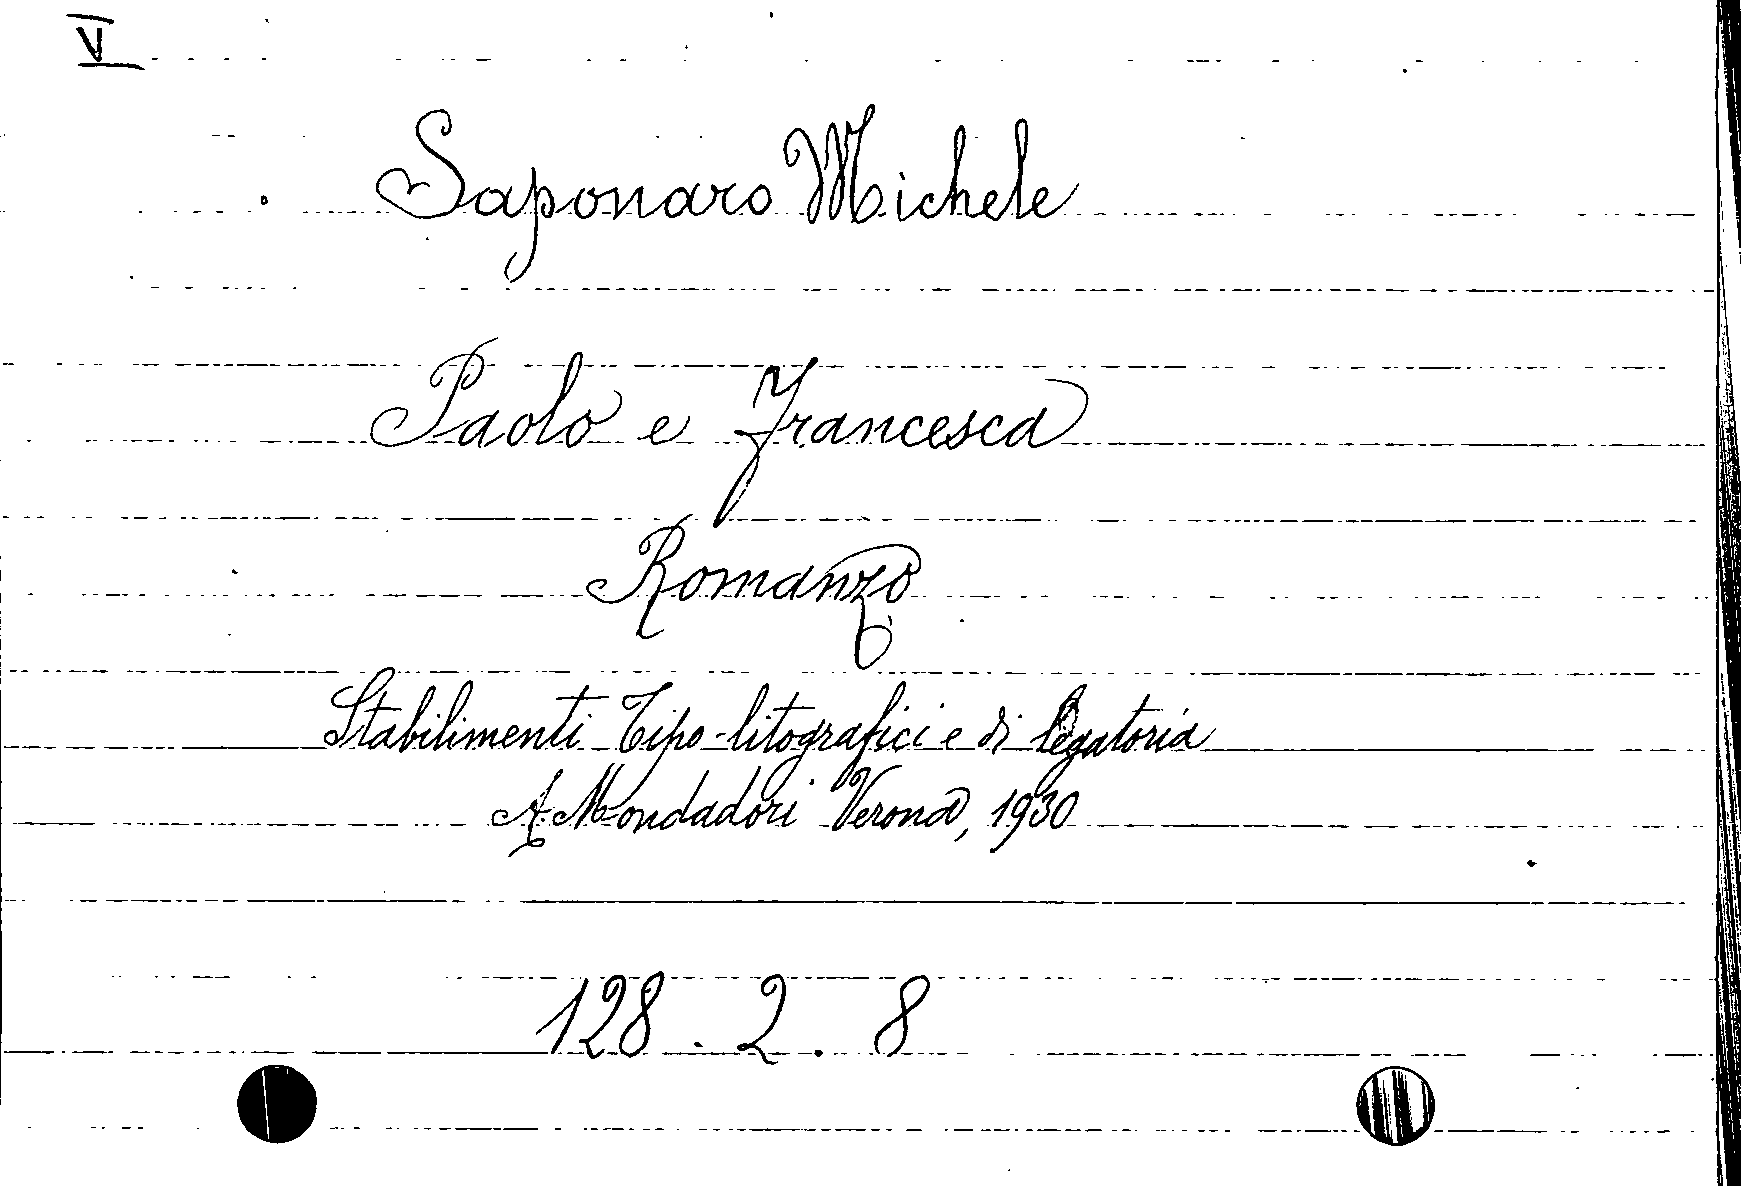 V
Saponaro Michele
Paolo e Francesca
Romanzo
Stabilimenti Tipo-litografici e di legatoria
A. Mondadori Verona, 1930
128. 2. 8